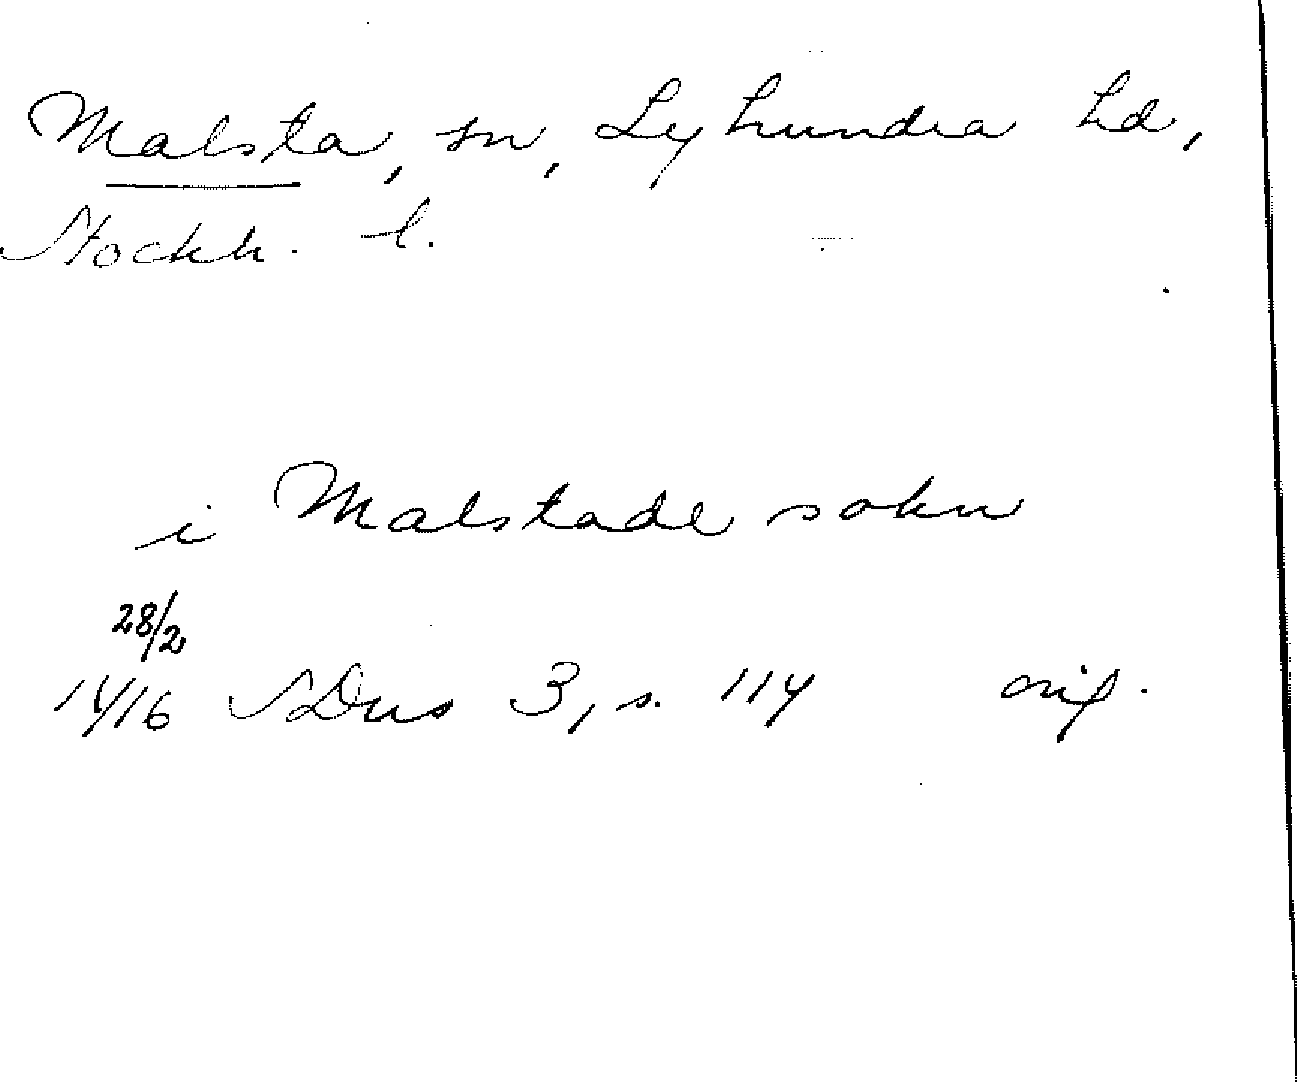 Malsta, sn, Lyhundra hd,
Stockh. l.
i Malstade sokn
28/2
1416 SDns 3, s. 114 orig.